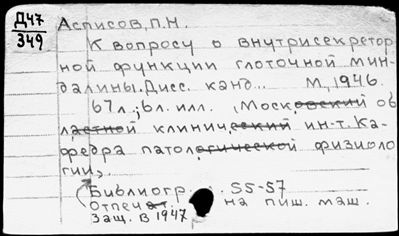 Д47
349
Асписов, П.Н.
К вопросу о внутрисекретор
ной функции глоточной мин-
далины. Дисс. канд... М, 1946.
67л.; 6л. илл. (Московский об
ластной клинический ин-т. Ка-
федра патологической физиоло
гии).
Библиогр. . . 55-57
Отпечат. . . на пиш. маш.
Защ. в 1947